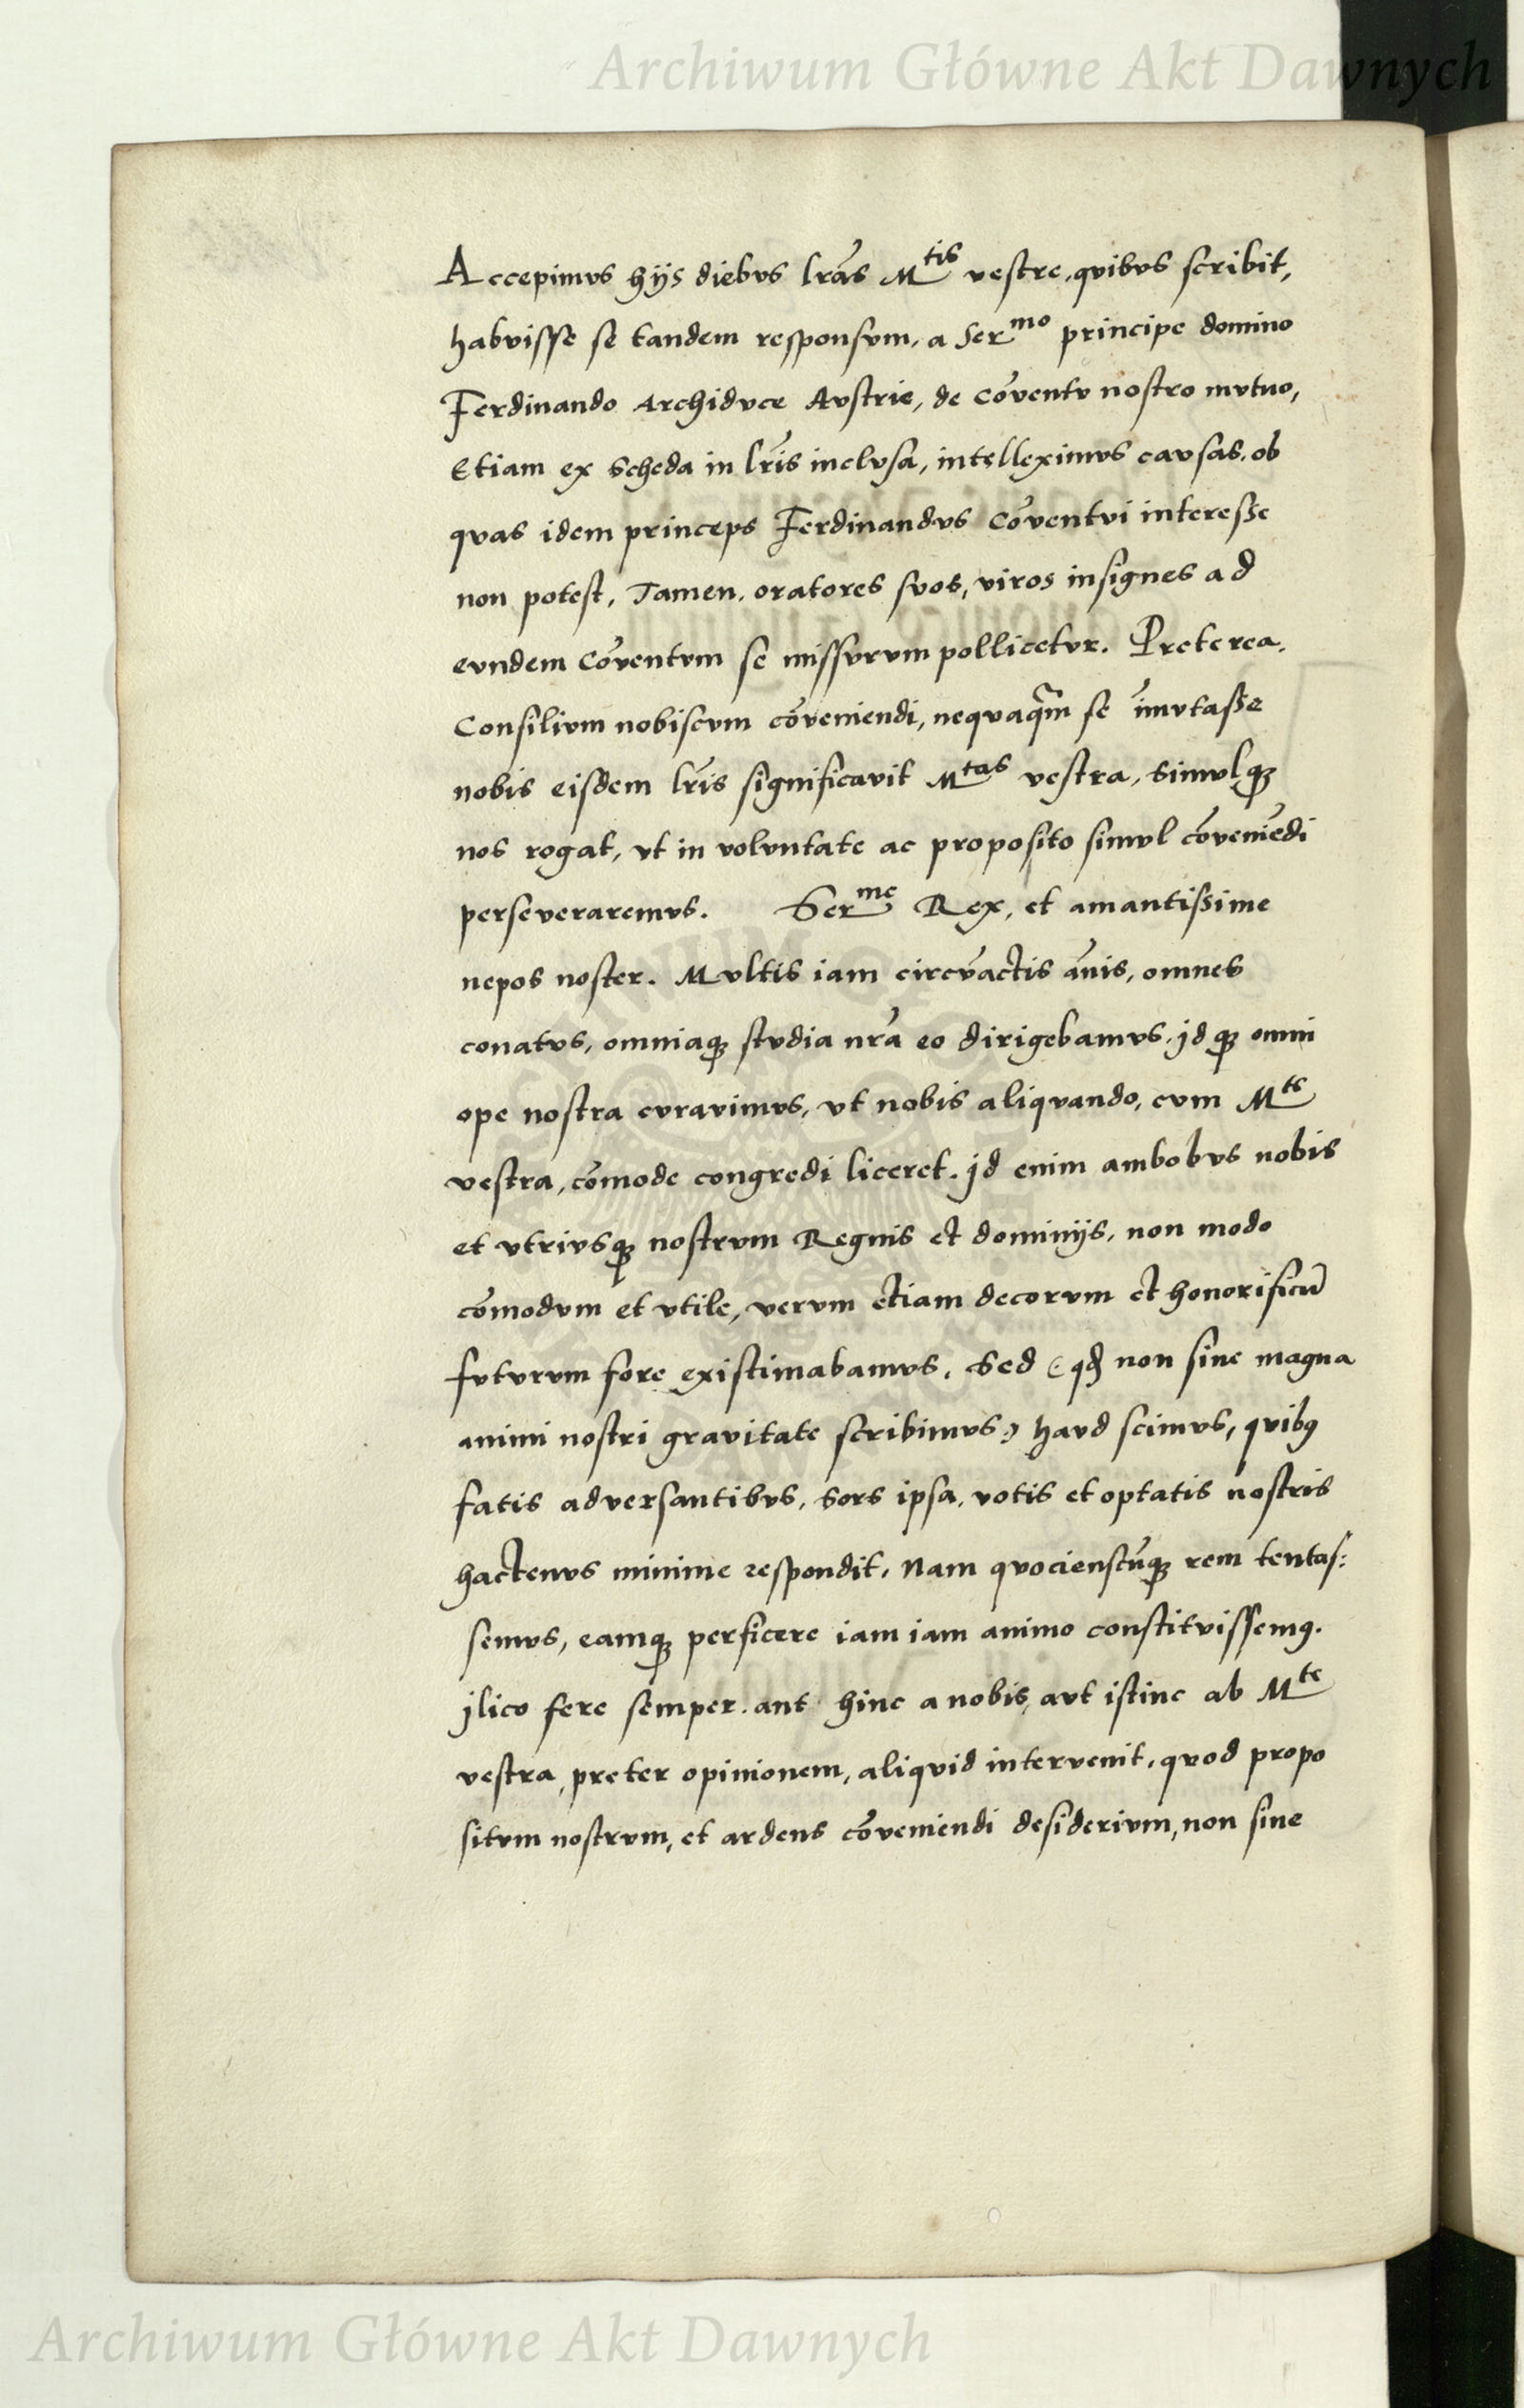 Archiwum Główne Akt Dawnych
Accepimus hijs diebus lr̃as M^tis vestre, quibus scribit,
habuisse se tandem responsum, a Ser^mo principe domino
Ferdinando Archiduce Austrie, de Cõuentu nostro mutuo,
Etiam ex Scheda in lr̃is inclusa, intelleximus causas, ob
quas idem princeps Ferdinandus Cõuentui interesse
non potest, Tamen, oratores suos, viros insignes ad
eundem Cõuentum se missurum pollicetur. Preterea,
Consilium nobiscum cõueniendi, nequaq̃m se im̃utasse
nobis eisdem lr̃is significauit M^tas vestra, Simulq;
nos rogat, ut in voluntate ac proposito simul cõueniẽdi
perseueraremus. Ser^me Rex, et amantissime
nepos noster. Multis iam circũactis ãnis, omnes
conatus, omniaq; studia nr̃a eo dirigebamus, idq; omni
ope nostra curauimus, ut nobis aliquando, cum M^te
vestra, cõmode congredi liceret. id enim ambobus nobis
et utriusq; nostrum Regnis et dominijs, non modo
cõmodum et utile, verum etiam decorum et honorificũ
futurum fore existimabamus. Sed (qđ non sine magna
animi nostri grauitate scribimus) haud scimus, quibꝰ
fatis aduersantibus, sors ipsa, votis et optatis nostris
hactenus minime respondit, Nam quocienscũq; rem tentas:
semus, eamq; perficere iam iam animo constituissemꝰ.
ilico fere semper. aut hinc a nobis, aut istinc ab M^te
vestra, preter opinionem, aliquid interuenit, quod propo
situm nostrum, et ardens cõueniendi desiderium, non sine
Archiwum Główne Akt Dawnych